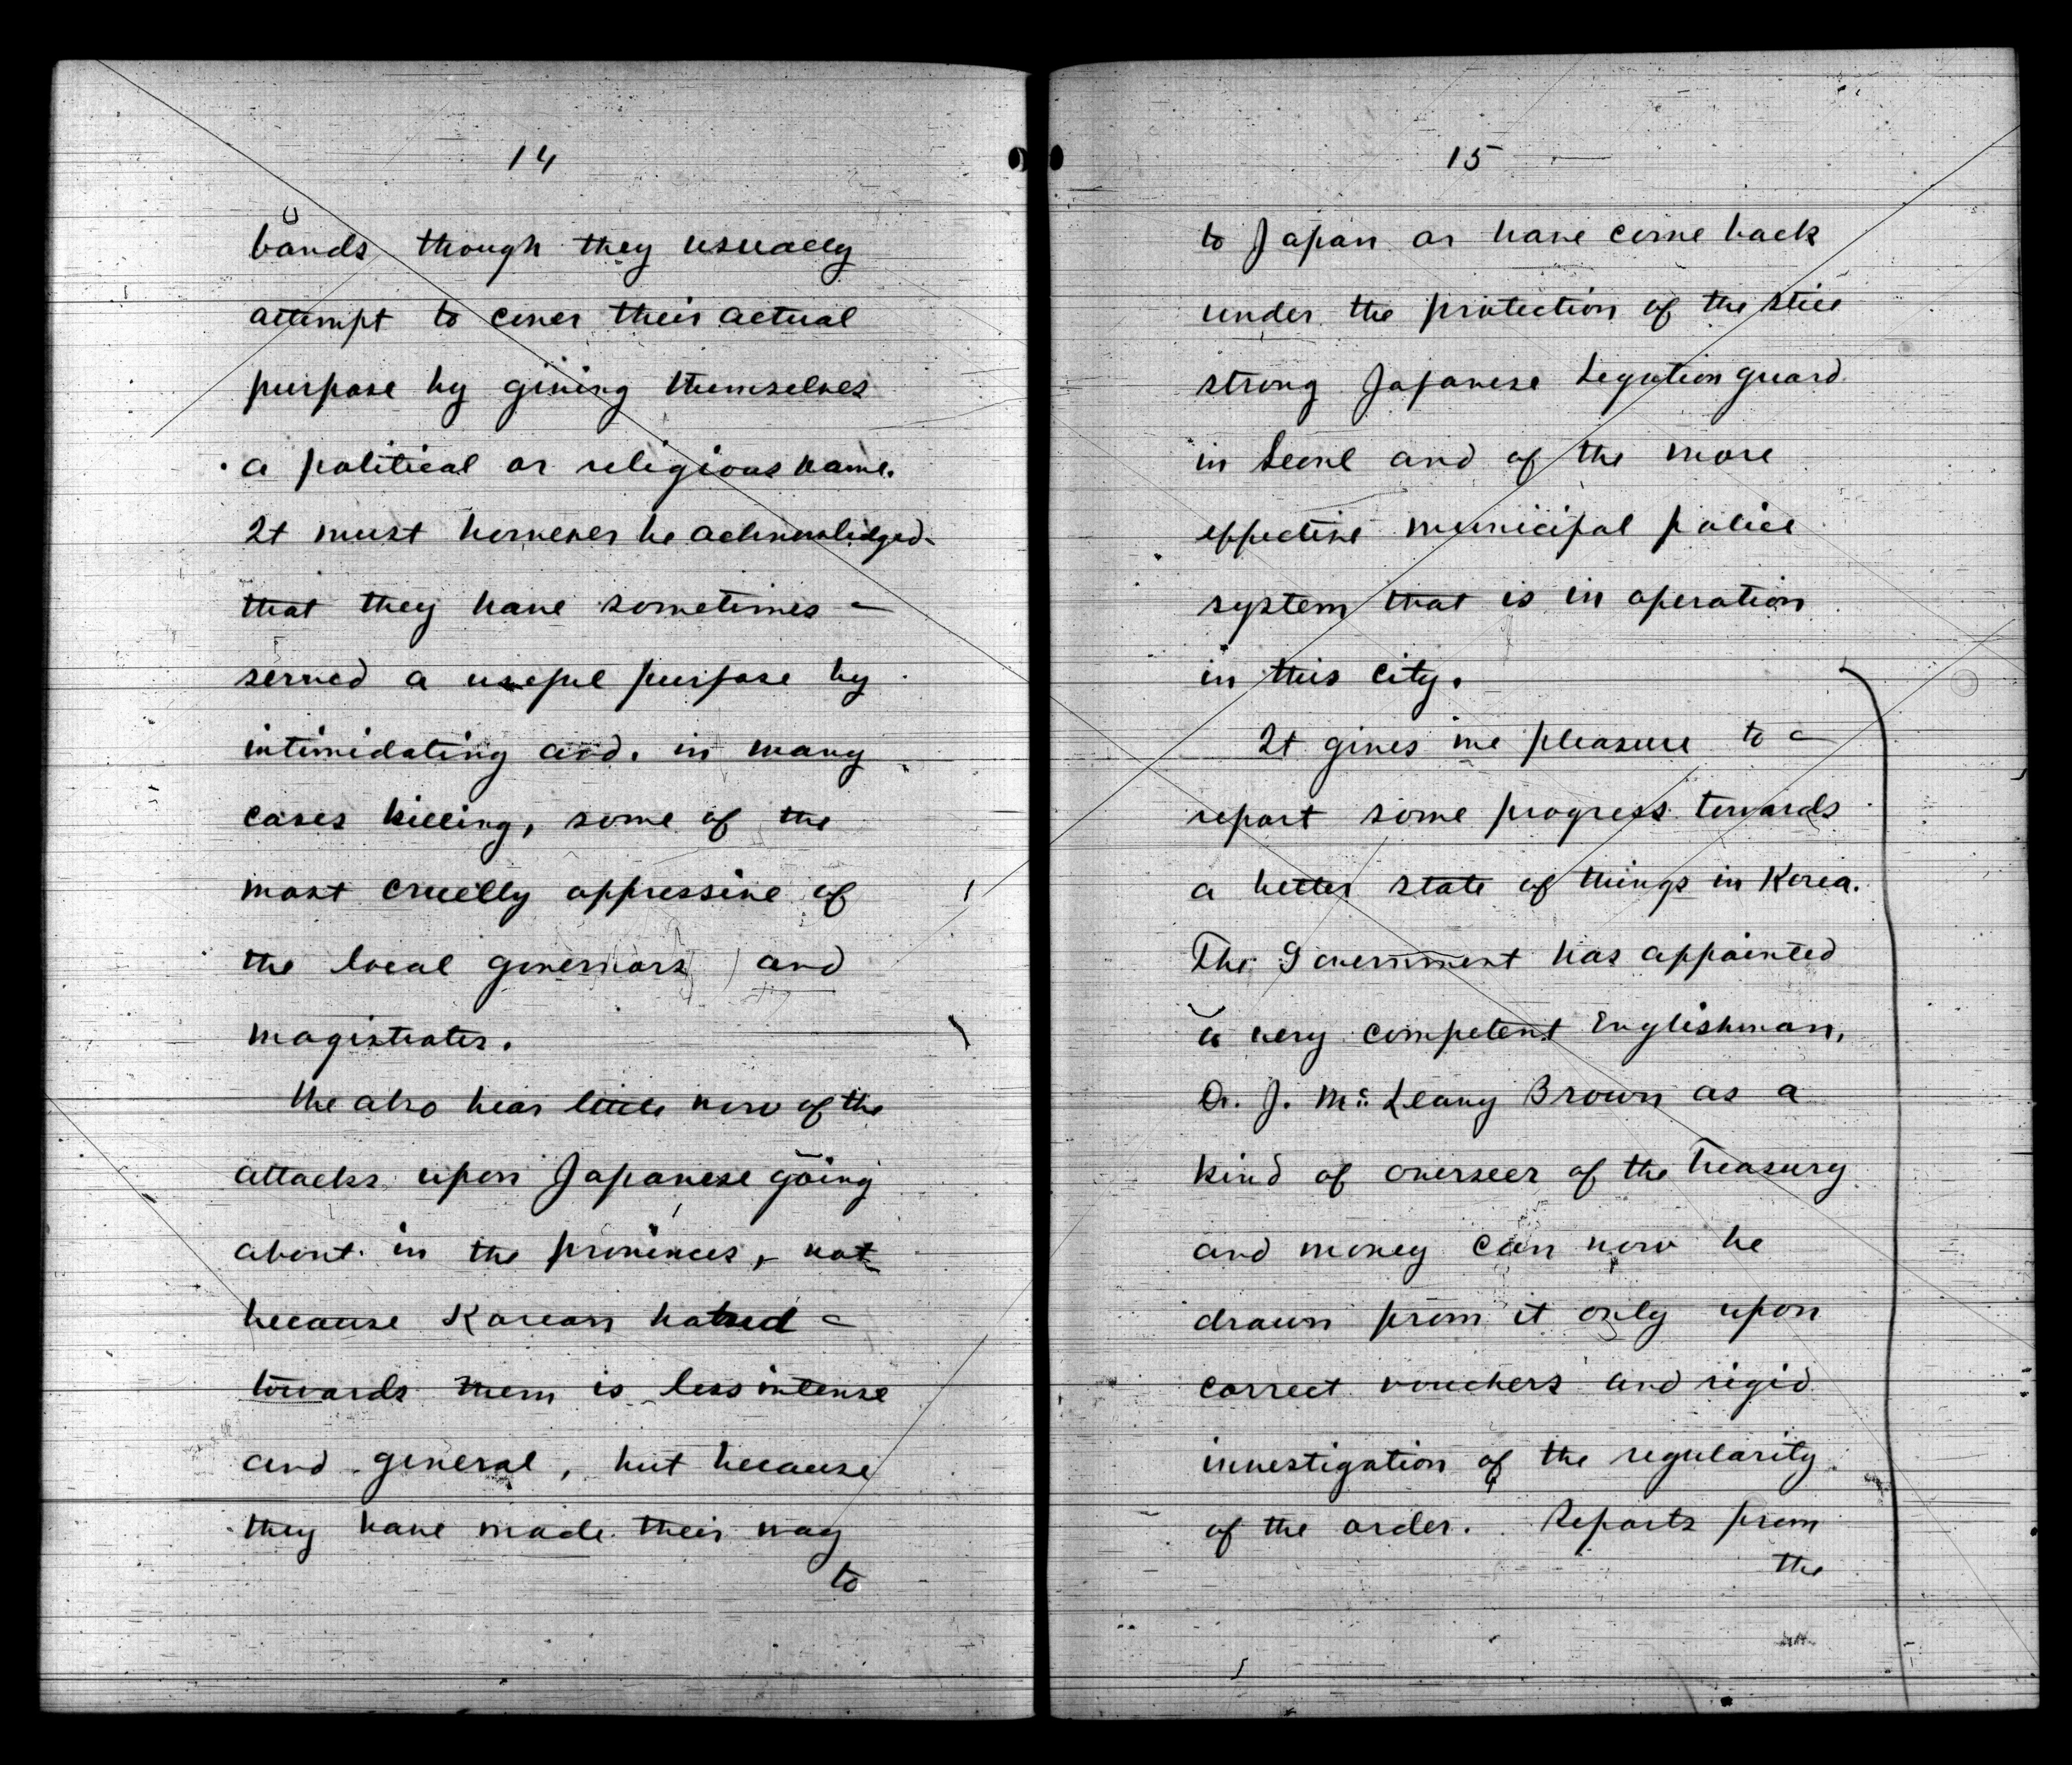 14
bands though they usually
attempt to cover their actual
purpose by giving themselves
a political or religious name.
It must however be acknowledged
that they have sometimes
served a useful purpose by
intimidating and, in many
cases killing, some of the
most cruelly oppressive of
the local governors and
magistrates.
We also hear little now of the
attacks upon Japanese going
about in the provinces, not
because Korean hatred
towards them is less intense
and general, but because
they have made their way
to
15
to Japan or have come back
under the protection of the still
strong Japanese Legation guard
in Seoul and of the more
effective municipal police
system that is in operation
in this city.
It gives me pleasure to
report some progress towards
a better state of things in Korea.
The Government has appointed
a very competent Englishman,
J. Mc. Leavy Brown as a
kind of overseer of the Treasury
and money can now be
drawn from it only upon
correct vouchers and rigid
investigation of the regularity
of the order. Reports from
the